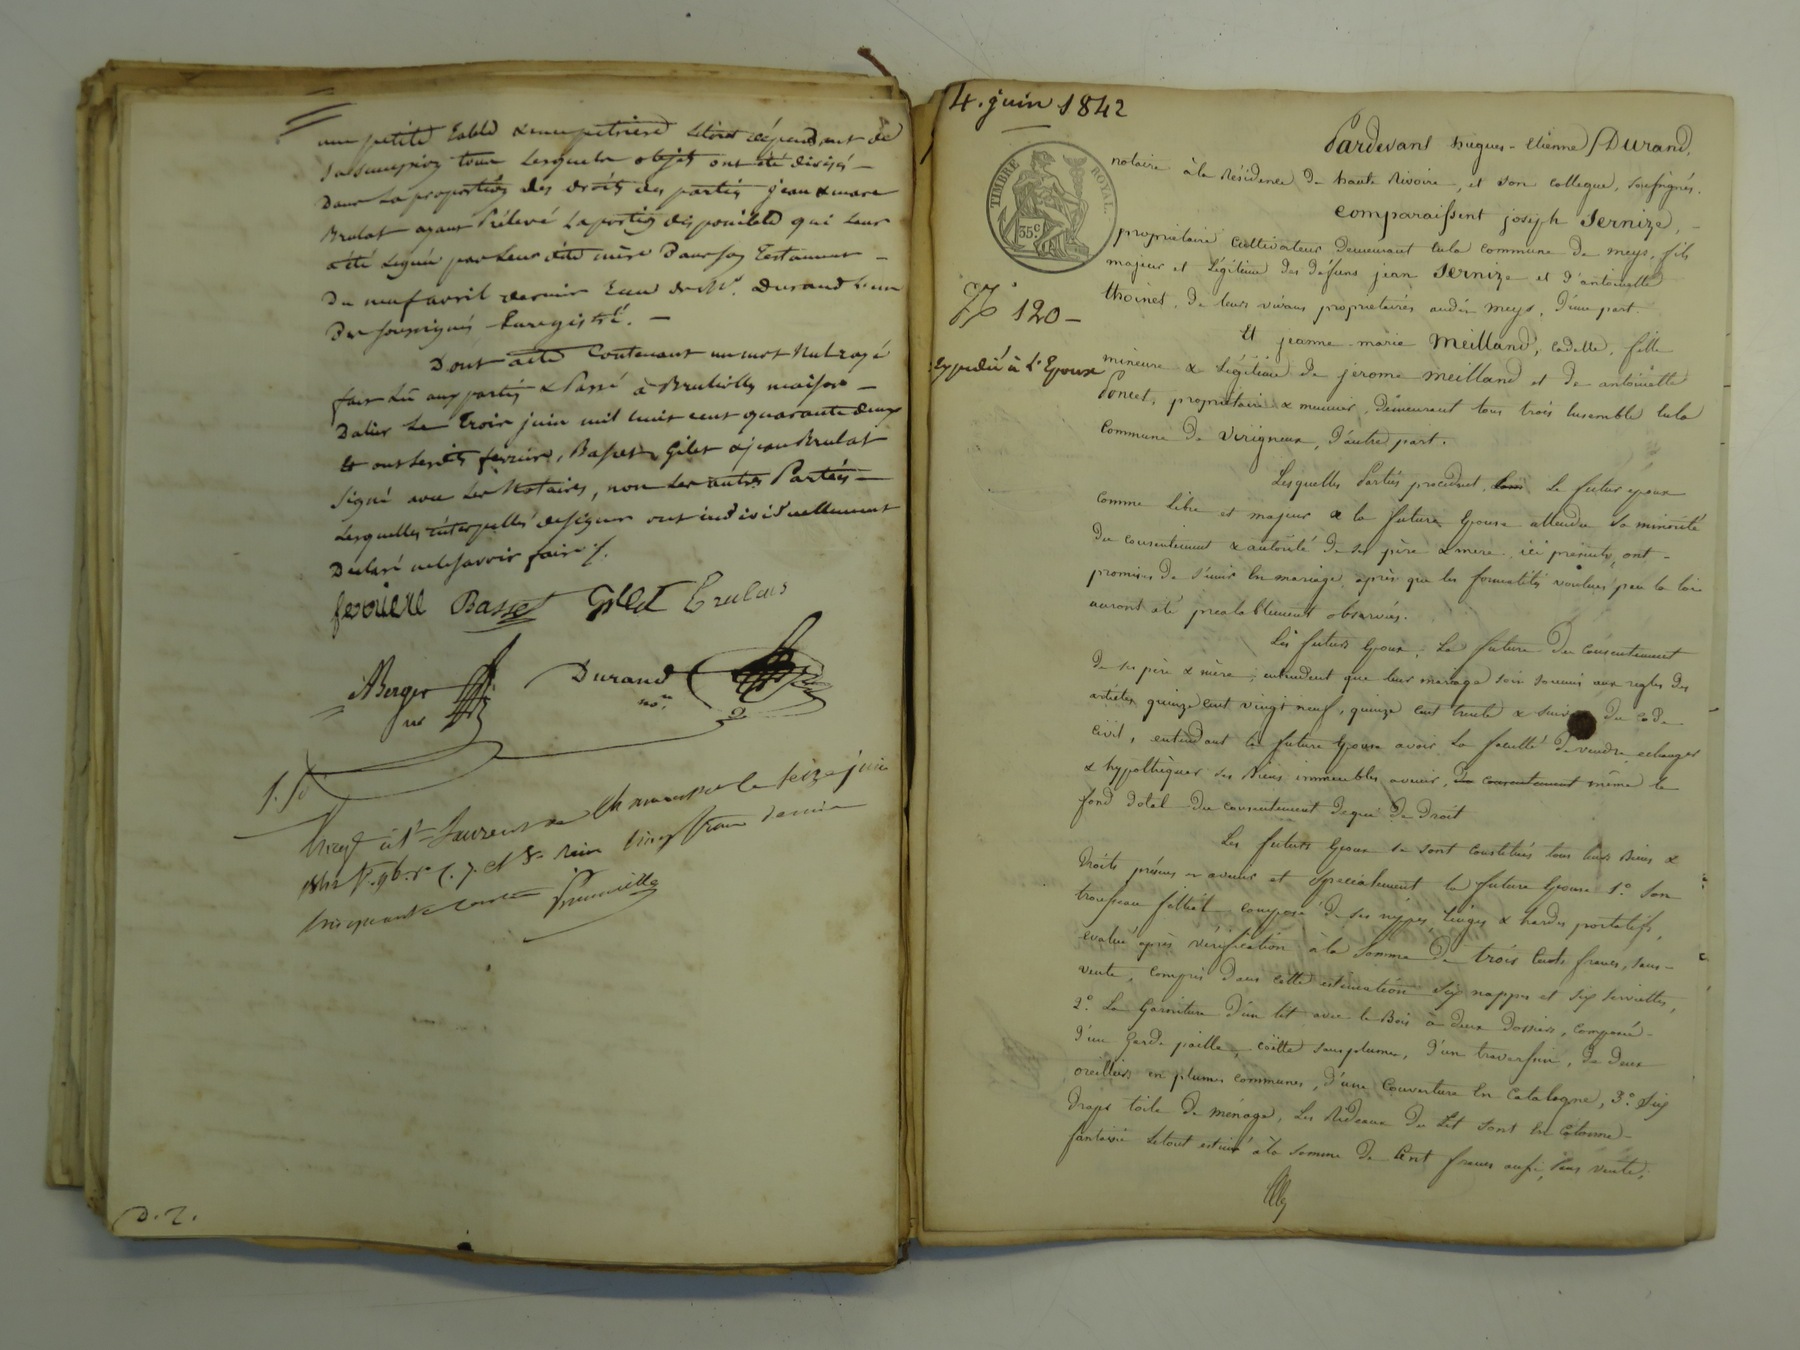 une petite table & une petriere le tout dépendant de
sa succession tous lesquels objets ont été divisés
Dans la proportion des droits des parties jean & marc
Brulat ayant Prélevé la portion disponible qui leur
a été Léguée par leur dite mère Dans son Testament
Du neuf avril dernier reçu de Me. Durand l'un
Des soussignés Enregistré.
Dont acte Contenant un mot nul rayé
fait Lu aux parties & Passé à Brullioles maison
Dalier Le Trois juin mil huit cent quarante deux
Et ont lesdits ferriere, Basset, Gilet & jean Brulat
Signé avec Les Notaires, non Les autres Parties
Lesquelles interpellés de signer ont individuellement
Déclaré ne le savoir faire ./.
ferriere Basset Gilet Brulat
ABerger Durand
nre
Enreg. à St Laurent de Chamousset le seize juin
1842 fo. 96. ro c. 7. et 8. Reçu cinq francs
cinquante centimes
D. 2.
4. juin 1842
TIMBRE ROYAL.
35c
No 120
Expédié à L'Epoux
Pardevant hugues-etienne Durand,
notaire à la Résidence De haute Rivoire, et son collegue, soussignés.
Comparaissent joseph Sernize,
propriétaire Cultivateur Demeurant en la commune De meys, fils
majeur et Légitime Des Défunts jean Sernize et D'antoinette
thoinet, De leurs vivans propriétaires audit meys, D'une part.
Et jeanne-marie Meilland, cadette, fille
mineure & Légitime De jerome Meilland et De antoinette
Poncet, propriétaire & meunier, Demeurant tous trois Ensemble En la
Commune De Virigneux, D'autre part.
Lesquelles Parties procédent, Le futur époux
comme Libre et majeur & la future Epouse attendu sa minorité
Du consentement & autorité De ses père & mère, ici présents, ont
promis De s'unir En mariage, après que les formalités voulues par la loi
auront été préalablement observées.
Les futurs Epoux, La future Du Consentement
De ses père & mère, entendent que leur mariage soit soumis aux regles Des
articles quinze cent vingt neuf, quinze cent trente & suivans Du Code
Civil, entendant la future Epouse avoir la faculté De vendre, echanger
& hypothéquer ses Biens immeubles avenir, Du consentement même le
fond Dotal Du consentement De qui De Droit
Les futurs Epoux se sont constitués tous leurs Biens &
Droits présens & avenir et spécialement la future Epouse 1o. Son
trousseau filliat composé De ses nippes linges & hardes portatifs,
évalué après vérification à la Somme De trois Cents francs, sans
vente, compris Dans cette estimation Six nappes et Six serviettes,
2o. La Garniture D'un lit avec le Bois à Deux Dossiers, composé
D'un Garde paille, coëtte sans plume, D'un traversin, De Deux
oreillers en plumes communes, D'une Couverture En Catalogne, 3o. Six
Draps toile De ménage, Les Rideaux Du Lit Sont En Cotonne
fantaisie Le tout estimé à la Somme De Cent francs aussi Sans vente;